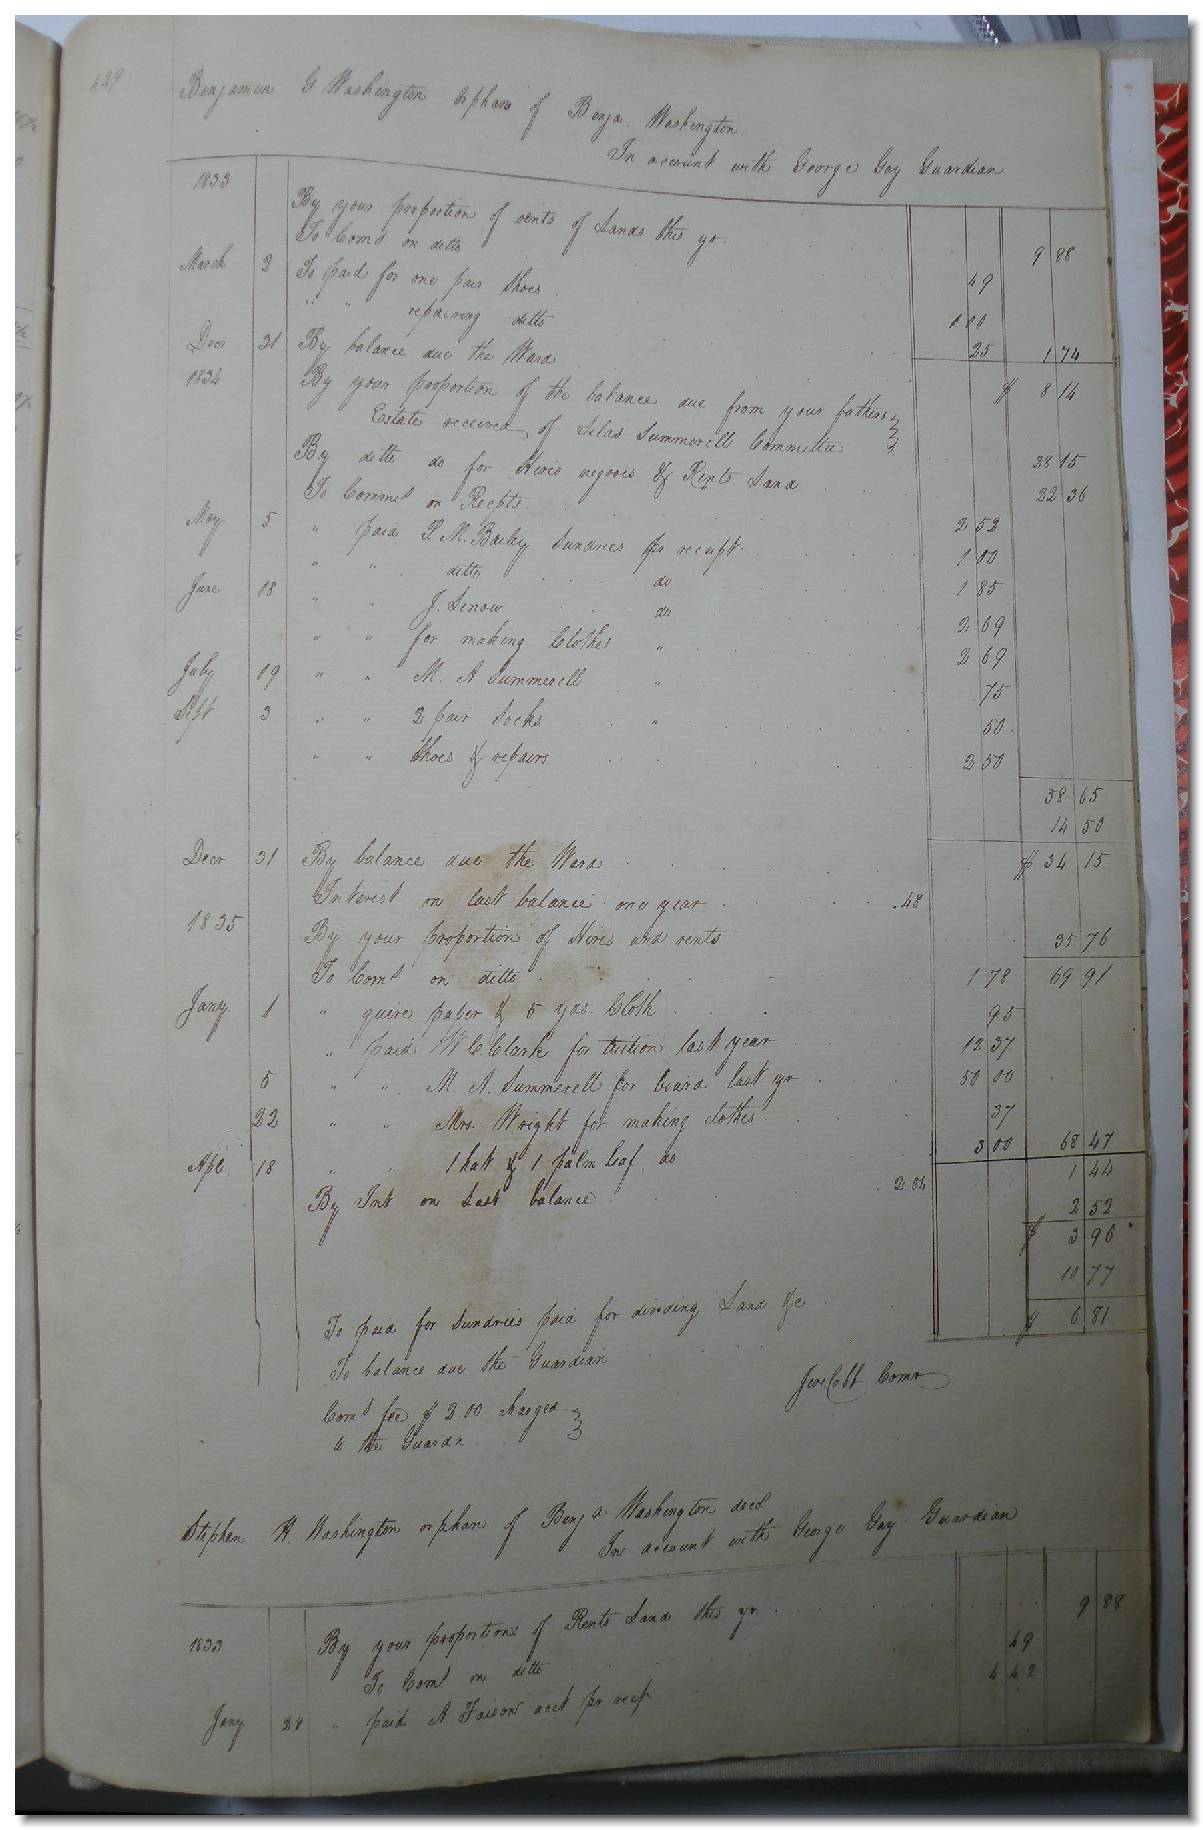 Benjamin G Washington orphan of Benja. Washington
In account with George Gay Guardian
1833
By your proportion of rents of Lands this yr. 9 88
To Coms on ditto 49
March 2 To paid for one pair Shoes 1 00
" " repairing ditto 25 1 74
Decr 31 By balance due the Ward $ 8 14
1834 By your proportion of the balance due from your fathers
Estate received of Silas Summerell Committee 28 15
By ditto do for Hires negroes & Rents Land 22 36
To Comms on Recpts 2 52
May 5 " paid P. M. Bailey Sundries pr receipt 1 00
" " ditto do 1 85
June 18 " " J. Lenow do 2 69
" " for making Clothes " 2 69
July 19 " " M. A Summerell " 75
Sept 3 " " 2 pair Socks " 50
" " Shoes & repairs 2 50
58 65
14 50
Decr 31 By balance due the Ward $ 34 15
Interest on last balance one year .48
1835 By your proportion of Hires and rents 35 76
To Coms on ditto 1 78 69 91
Jany 1 " quire paber & 5 yds. Cloth 95
" paid W C Clark for tuition last year 12 37
5 " " M A. Summerell for board last yr 50 00
22 " " Mrs. Wright for making clothes 37
Apl. 18 " " 1 hat & 1 palm leaf do 3 00 68 47
By Int on Last balance 2.04 1 44
2 52
$ 3 96
To paid for Sundries paid for dividing Land &c 10 77
To balance due the Guardian $ 6 81
Coms fee of 2.00 charged
to the Guardn
Jere Cobb Comr
Stephen H. Washington orphan of Benja Washington decd
In account with George Gay Guardian
1833 By your proportions of Rents Land this yr. 9 88
To Coms on ditto 49
Jany 28 " paid A. Faison acct pr recp 4 42